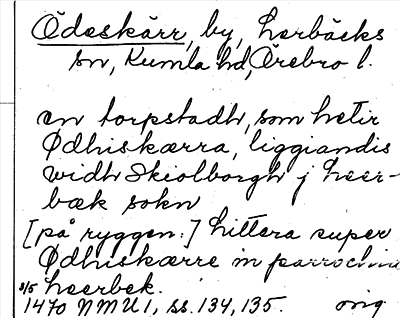 Ödeskärr, by, Lerbäcks
sn, Kumla hd, Örebro l.
en torpstadh, som hetir
Ødhiskærra, liggiandis
widh Skiolborgh j leer-
bæk sokn
[på ryggen:] littera super
Ødhiskærre in parrochia
leerbek.
3/5 1470 NMU 1, ss. 134, 135. orig